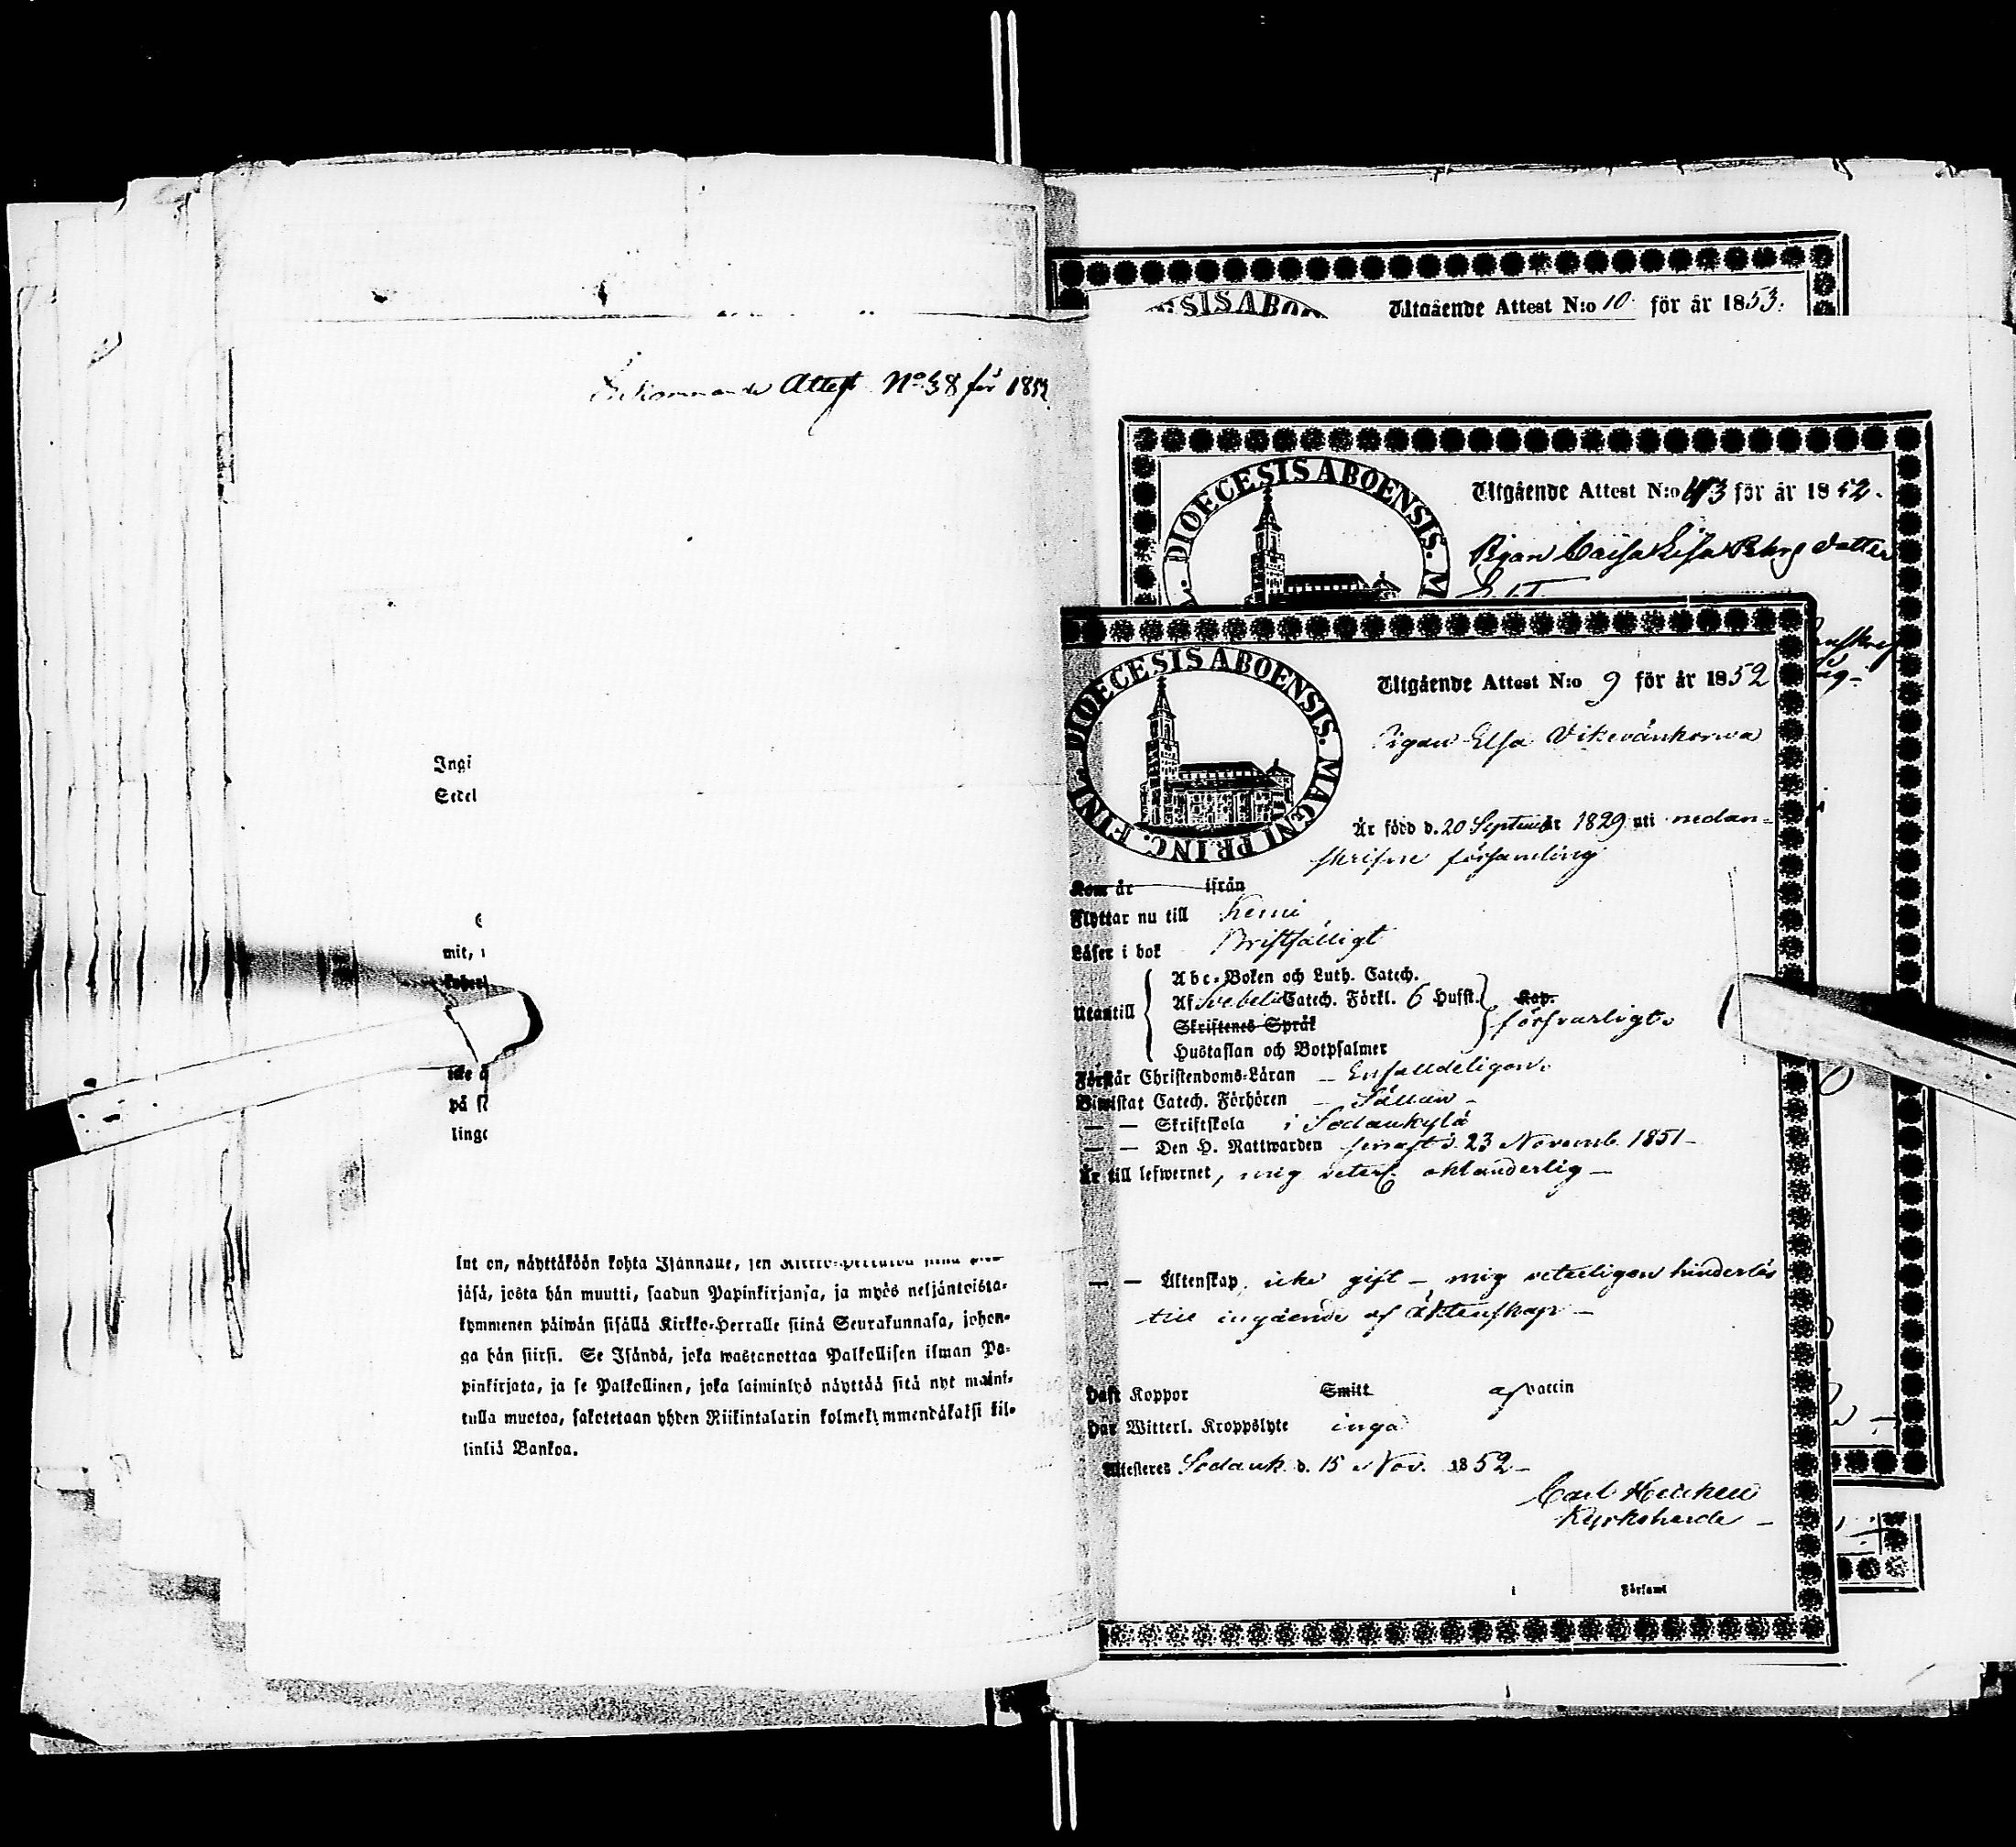 Inkommande Attest No 38 för 1852.
Ingi
Sedel
mit,
icke å
på st
linge
lut on, näyttäköön kohta Isännalle, sen Kirkko-Herralda siinä
jäsä, josta hän muutti, saadun Papinkirjanja, ja myös neljäntoista-
kymmenen päiwän sisällä Kirkko-Herralle siinä Seurakunnasa, johon-
ga hän siirsi. Se Isändä, joka wastanottaa Palkollisen ilman Pa-
pinkirjata, ja se Palkollinen, joka laiminlyö näyttää sitä nyt maini-
tulla muotoa, sakotetaan yhden Riikintalarin kolmekymmendäkaksi kil-
linkiä Bankoa.
SIS ABO
Utgående Attest N:o 10 för år 1853.
DIOECESIS ABOENSIS. M
Utgående Attest N:o 43 för år 1852.
Pigan Caisa Lisa Pehrs dotter
DIOECESIS ABOENSIS. MAGNI PRINC. FINL.
Utgående Attest N:o 9 för år 1852
Pigan Elsa Vikevänkorwa
Är född d. 20 September 1829 uti nedan-
skrifne församling
Kom år ifrån
Flyttar nu till Kemi
Läser i bok Bristfälligt
Utantill
Abc-Boken och Luth. Catech.
Af Svebelii Catech. Förkl. 6 Hufst. Kap.
Skriftenes Språk försvarligt
Hustaflan och Botpsalmer
Förstår Christendoms-Läran – Enfalldeligen.
Biwistat Catech. Förhören – Sällan –
— — Skriftskola i Sodankylä
— — Den H. Nattwarden senast d. 23 Novemb. 1851 –
Är till lefwernet, mig veterl. oklanderlig –
— — Äktenskap, icke gift – mig veterligen hinderlös
till ingående af äktenskap –
Haft Koppor Smitt af vaccin
Har Witterl. Kroppslyte inga
Attesteres Sodank. d. 15 Nov. 1852 –
Carl Heickell
Kyrkoherde –
i Församl